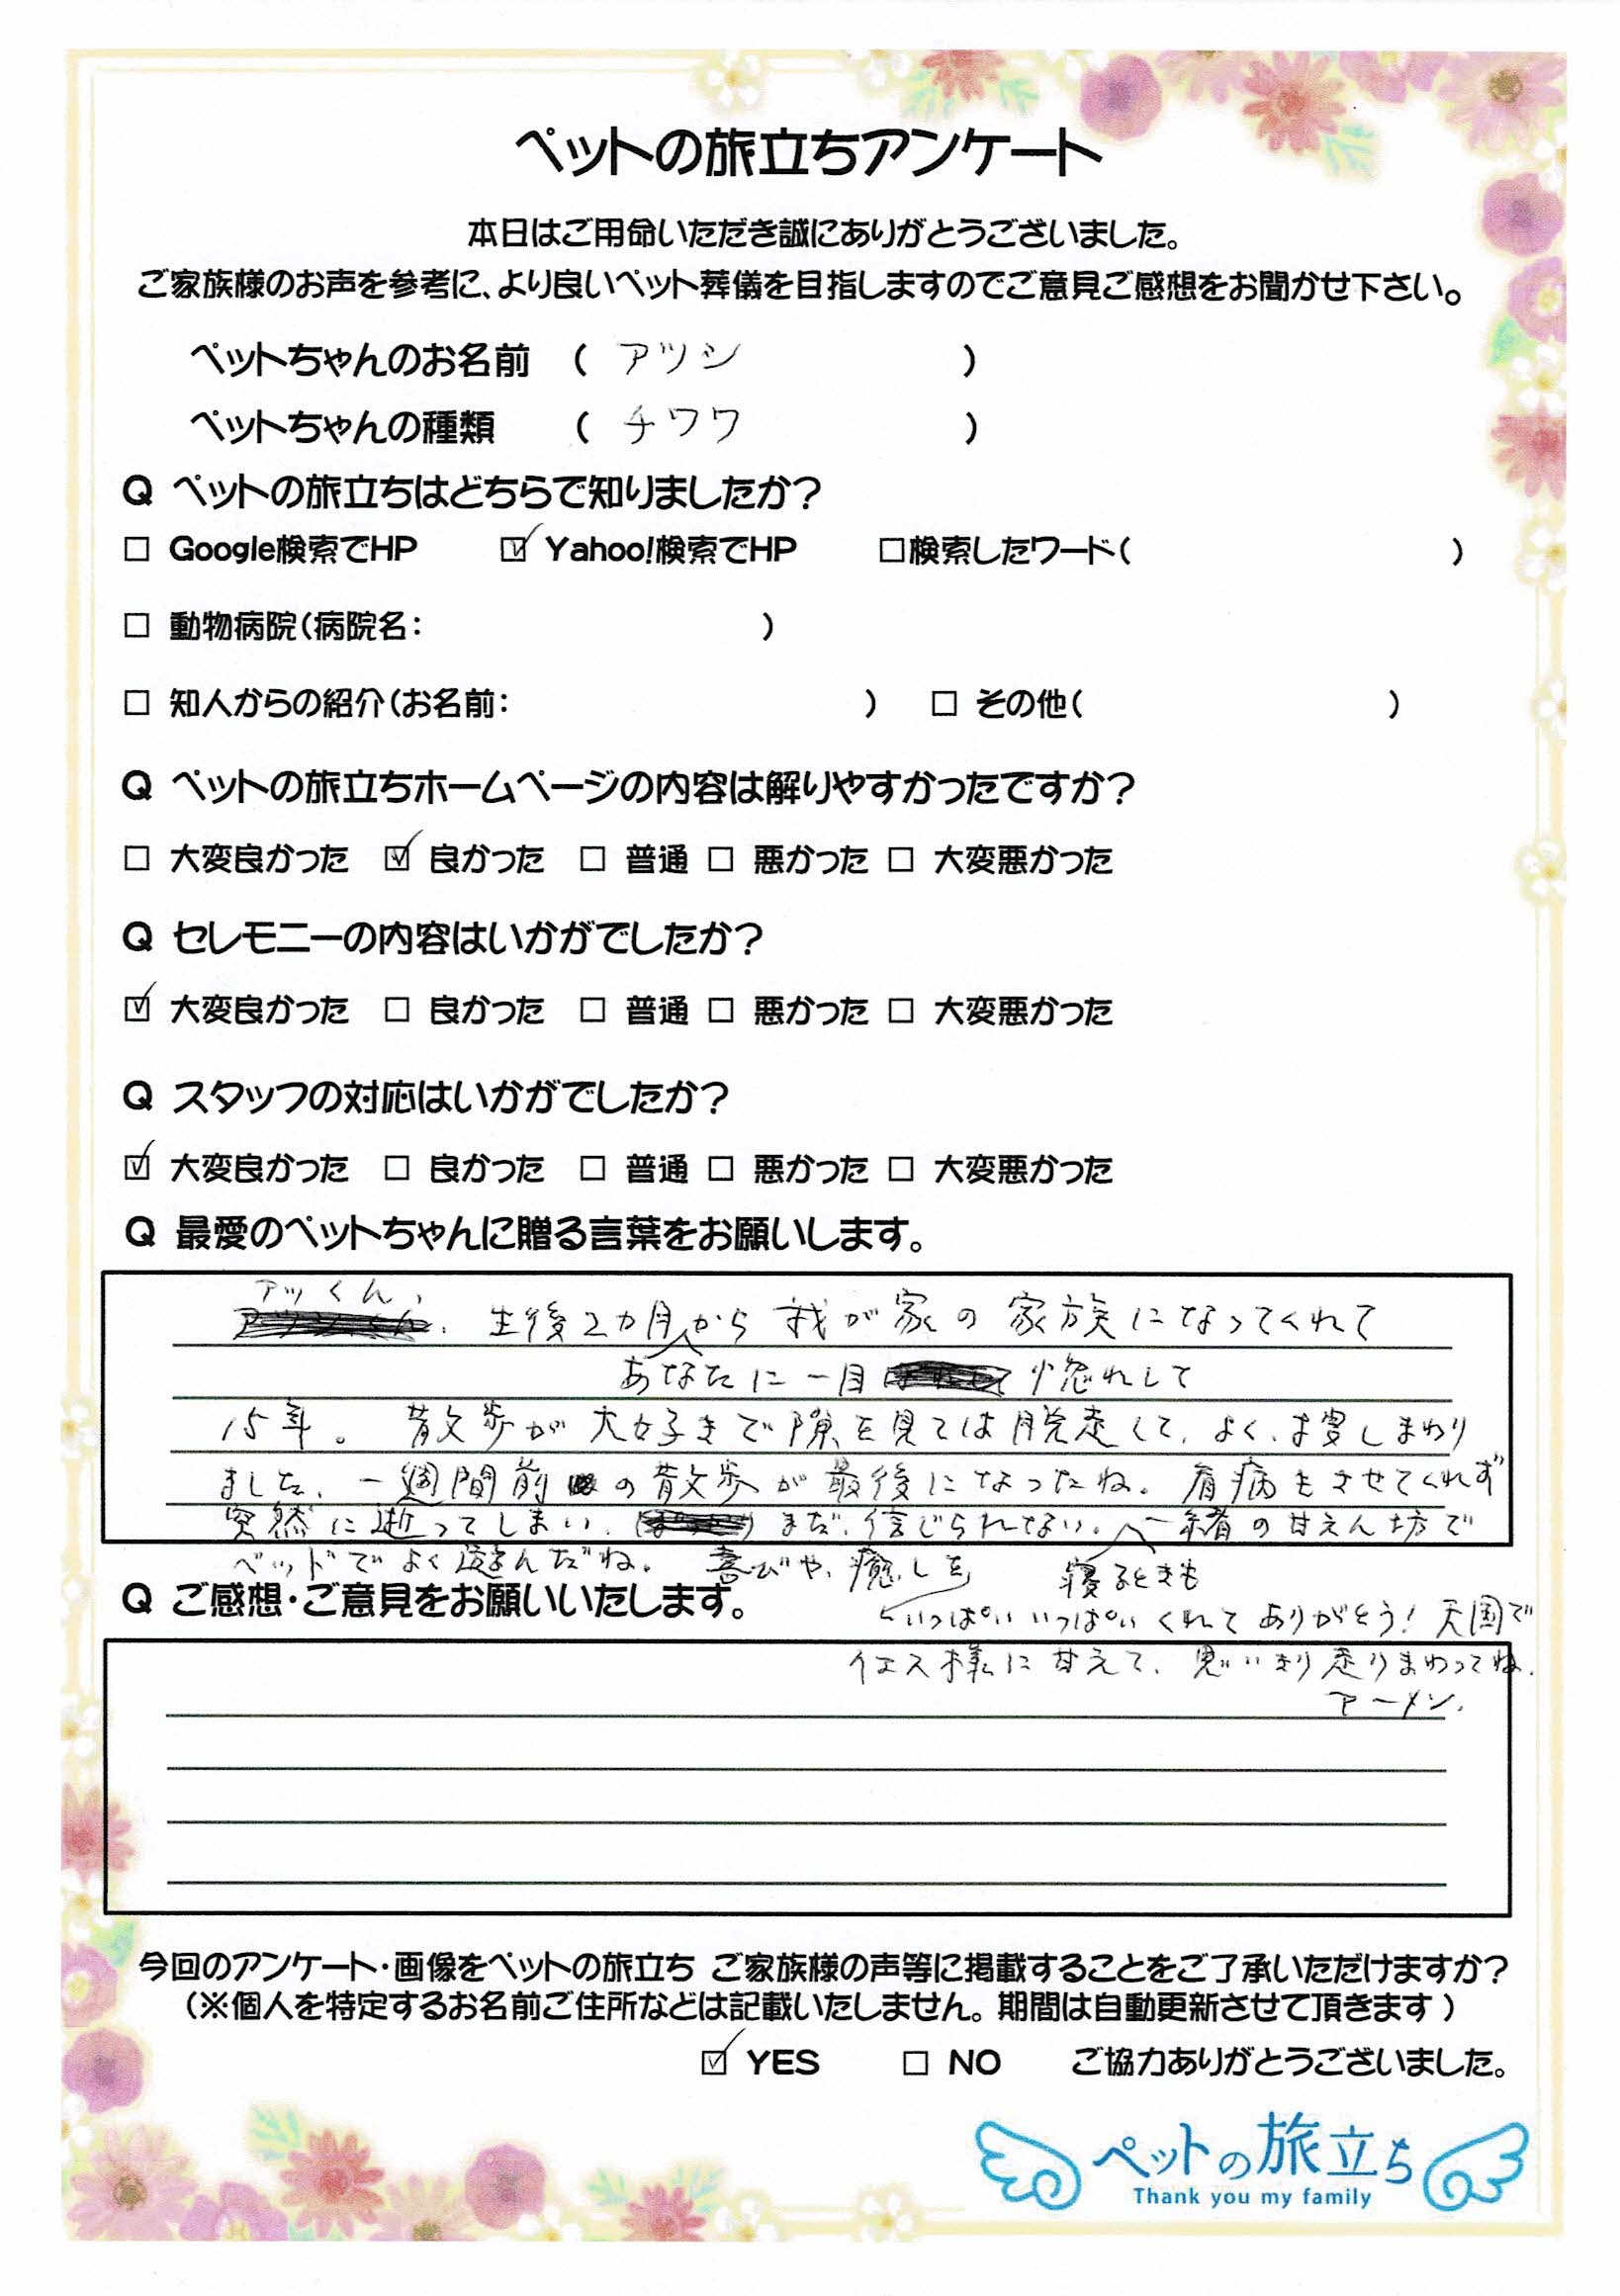 ペットの旅立ちアンケート
本日はご用命いただき誠にありがとうございました。
ご家族様のお声を参考に、より良いペット葬儀を目指しますのでご意見ご感想をお聞かせ下さい。
ペットちゃんのお名前 ( アツシ )
ペットちゃんの種類 ( チワワ )
Q ペットの旅立ちはどちらで知りましたか?
□ Google検索でHP ☑ Yahoo!検索でHP □検索したワード( )
□ 動物病院(病院名: )
□ 知人からの紹介(お名前: ) □ その他( )
Q ペットの旅立ちホームページの内容は解りやすかったですか?
□ 大変良かった ☑ 良かった □ 普通 □ 悪かった □ 大変悪かった
Q セレモニーの内容はいかがでしたか?
☑ 大変良かった □ 良かった □ 普通 □ 悪かった □ 大変悪かった
Q スタッフの対応はいかがでしたか?
☑ 大変良かった □ 良かった □ 普通 □ 悪かった □ 大変悪かった
Q 最愛のペットちゃんに贈る言葉をお願いします。
アツくん、
生後2カ月から 我が家の家族になってくれて
あなたに一目惚れして
15年。 散歩が大好きで隙を見ては脱走して、よく、捜しまわり
ました、一週間前の散歩が最後になったね。看病もさせてくれず
突然に逝ってしまい、まだ、信じられない。一緒の甘えん坊で
ベッドでよく遊んだね。 喜びや、癒しを
寝るときも
Q ご感想・ご意見をお願いいたします。
いっぱいいっぱいくれてありがとう! 天国で
イエス様に甘えて、思いきり走りまわってね.
アーメン.
今回のアンケート・画像をペットの旅立ち ご家族様の声等に掲載することをご了承いただけますか?
(※個人を特定するお名前ご住所などは記載いたしません。期間は自動更新させて頂きます)
☑ YES □ NO ご協力ありがとうございました。
ペットの旅立ち
Thank you my family